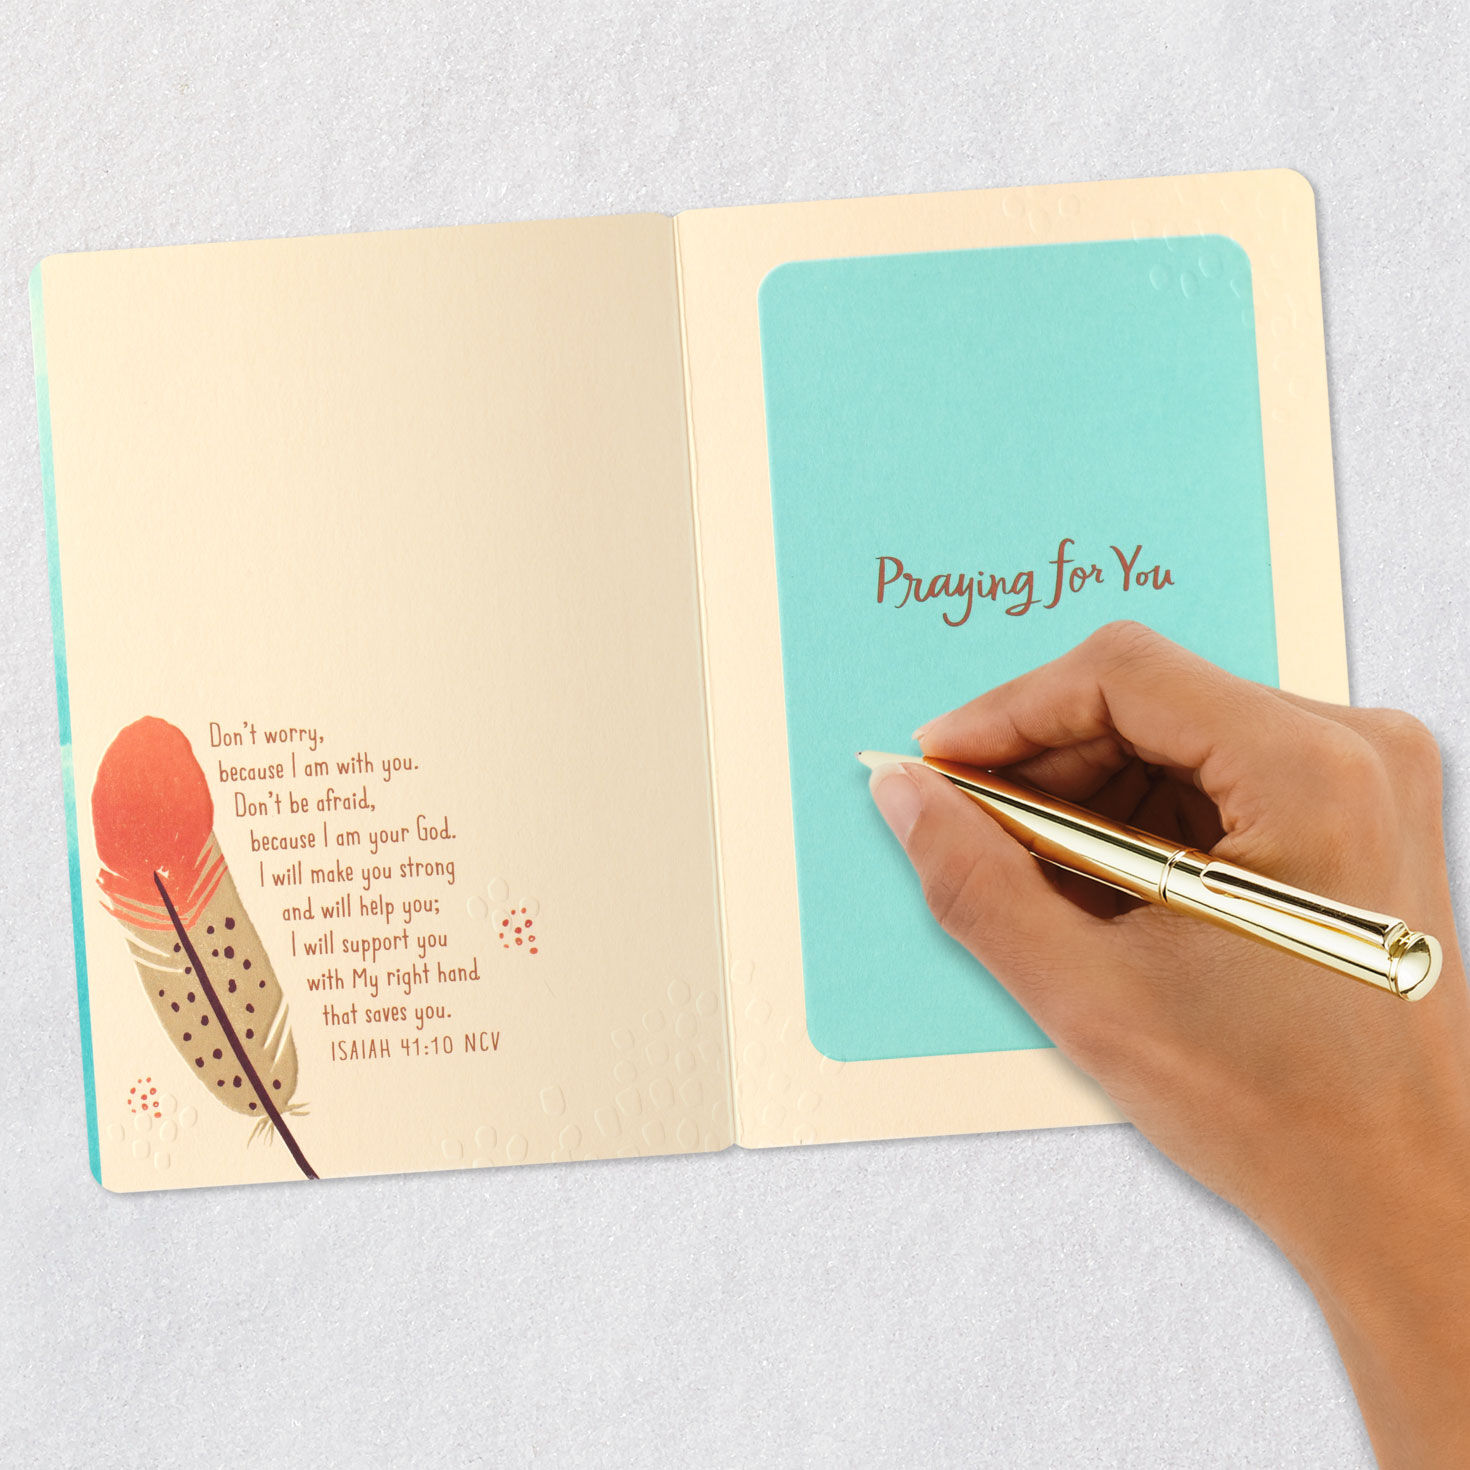 Don't worry,
because I am with you.
Don't be afraid,
because I am your God.
I will make you strong
and will help you;
I will support you
with My right hand
that saves you.
ISAIAH 41:10 NCV
Praying for You